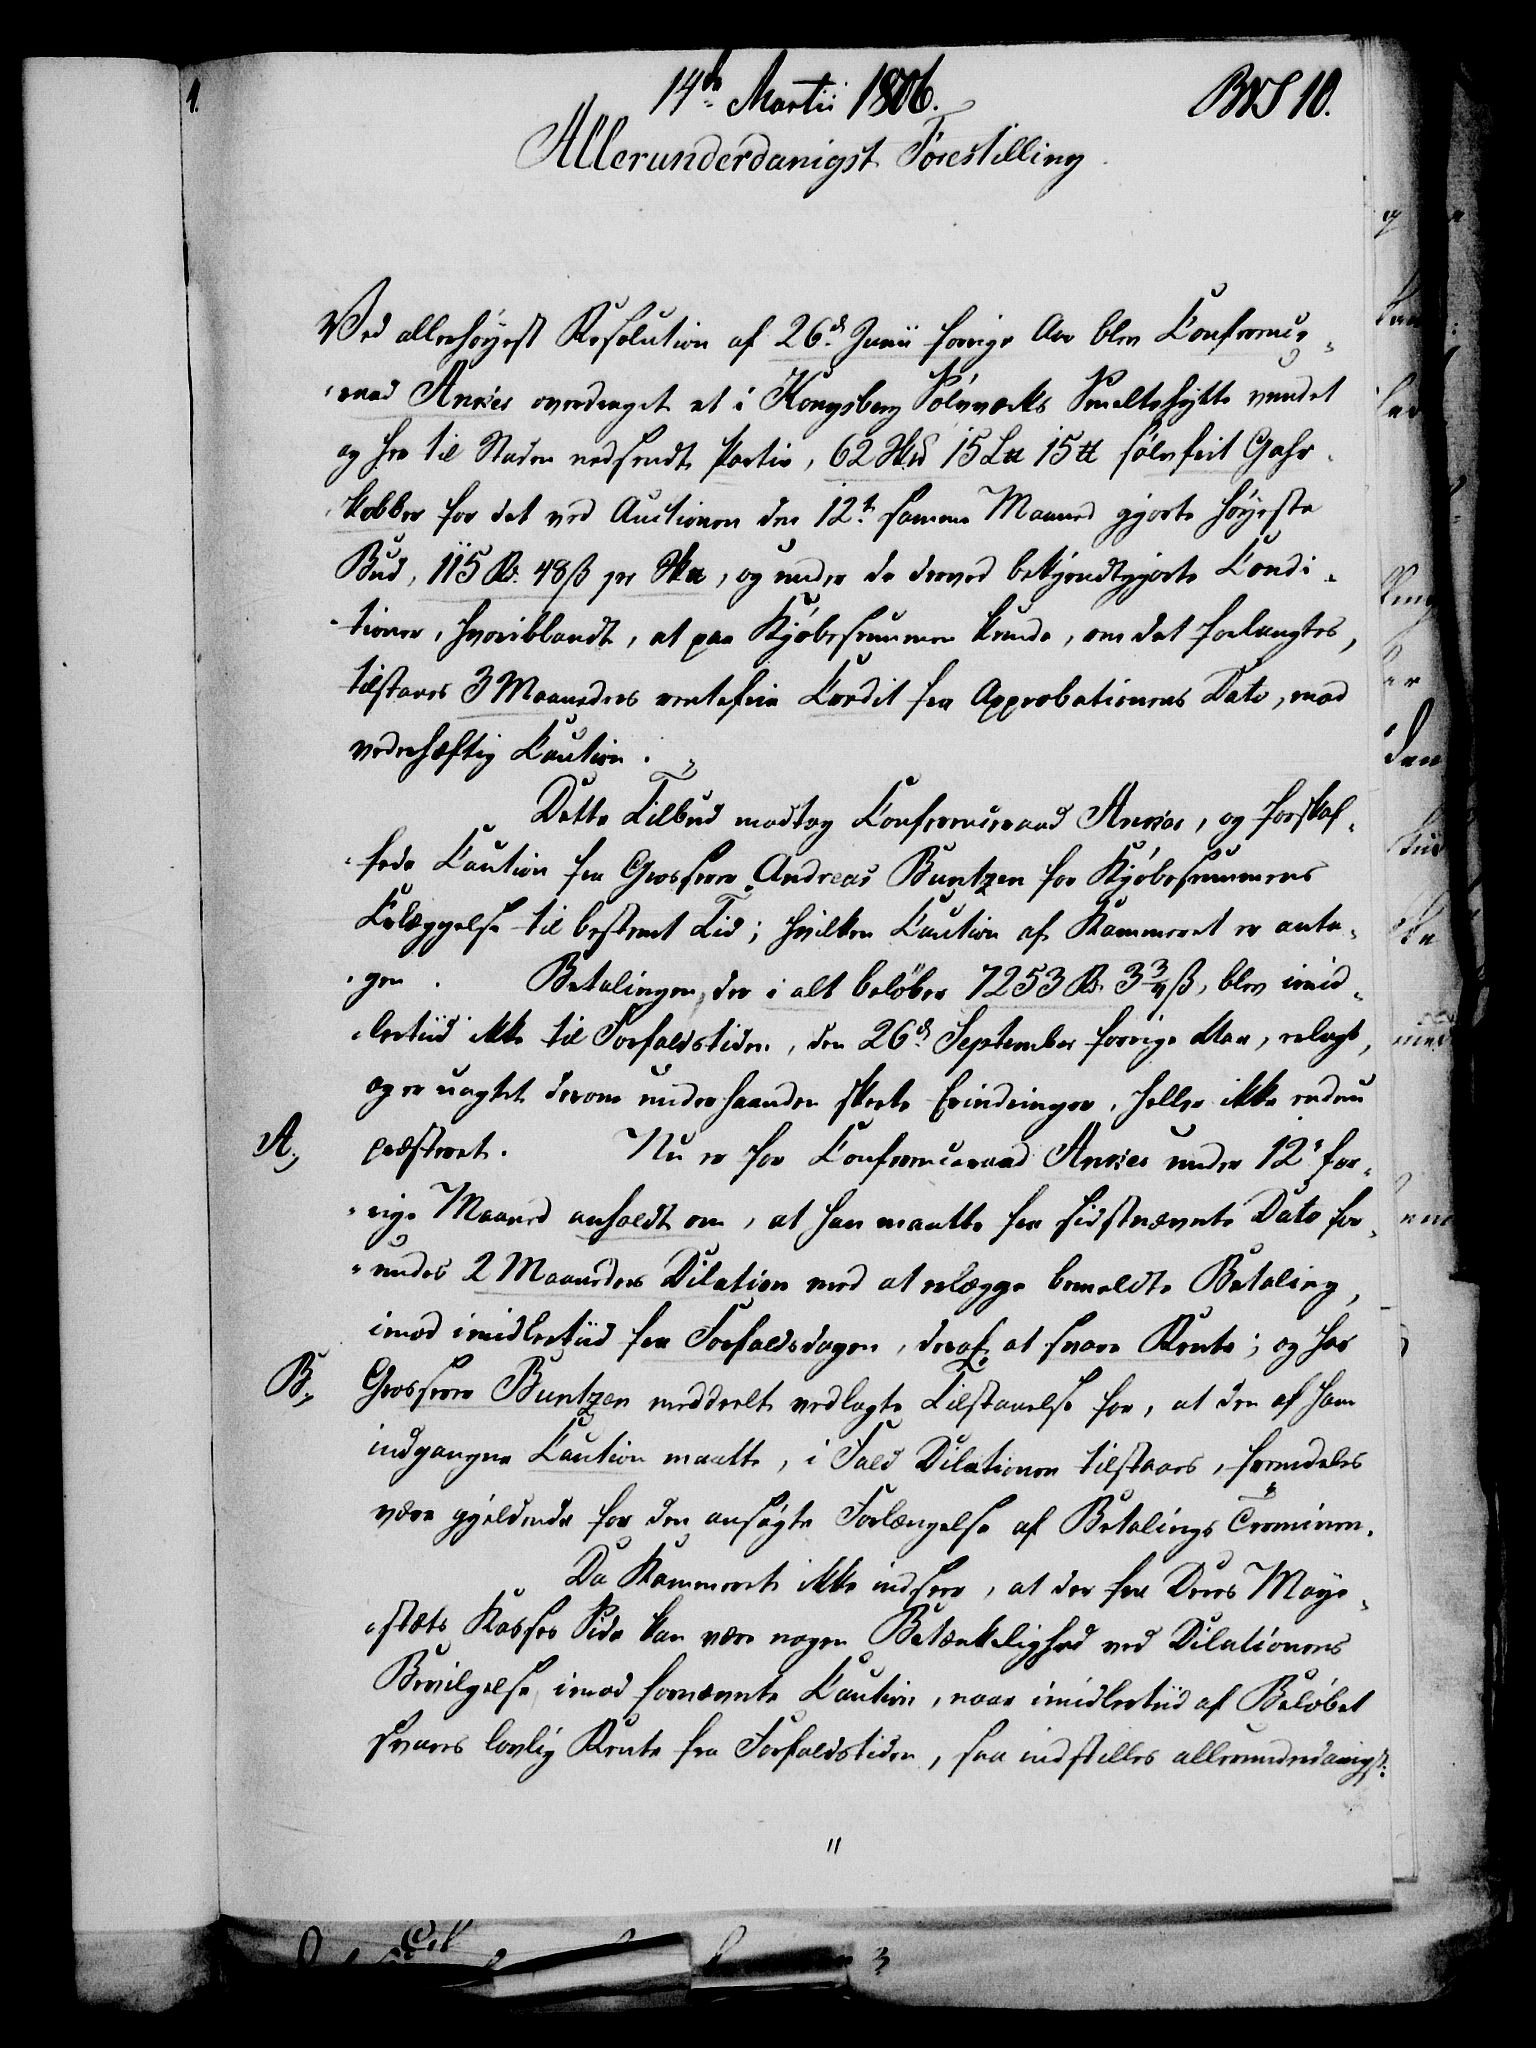 1.
14de Martii 1806.
BVS 10.
Allerunderdanigst Forestilling.
Ved allerhöyest Resolution af 26d Junii forrige Aar blev Conference-
-raad Ankér overdraget et i Kongsberg Sölvværks Smeltehytte vundet
og her til Staden nedsendt Partie, 62 Sk℔ 15 L℔ 15 ℔ sölvfrit Gahr-
-kobber for det ved Auctionen den 12te samme Maaned gjorte höyeste
Bud, 115 Rd. 48 ß pr Sk℔, og under de derved bekjendtgjorte Condi-
-tioner, hvoriblandt, at paa Kjöbesummen kunde, om det forlangtes,
tilstaaes 3 Maaneders rentefrie Credit fra Approbationens Dato, mod
vederhæftig Caution.
Dette Tilbud modtog Conferenceraad Anker, og forskaf-
-fede Caution fra Grosserer Andreas Buntzen for Kjöbesummens
Erlæggelse til bestemt Tid; hvilken Caution af Kammeret er anta-
-gen. Betalingen, der i alt belöber 7253 Rd. 3 3/4 ß, blev imid-
-lertiid ikke til Forfaldstiden, den 26d September forrige Aar, erlagt,
og er uagtet derom underhaanden skeete Erindringer, heller ikke endnu
A., præsteret. Nu er for Conferenceraad Anker under 12te for-
-rige Maaned anholdt om, at han maatte fra sidstnævnte Dato for-
-undes 2 Maaneders Dilation med at erlægge bemeldte Betaling,
imod imidlertiid fra Forfaldsdagen, deraf at svare Rente; og har
B., Grosserer Buntzen meddeelt vedlagte Tilstaaelse for, at den af ham
indgangne Caution maatte, i Fald Dilationen tilstaaes, fremdeles
være gjeldende for den ansögte Forlængelse af Betalings Terminen.
Da Kammeret ikke indseer, at der fra Deres Maye-
-stæts Kasses Side kan være nogen Betænkelighed ved Dilationens
Bevilgelse, imod fornævnte Caution, naar imidlertiid af Belöbet
svares lovlig Rente fra Forfaldstiden, saa indstilles allerunderdanigst:
"